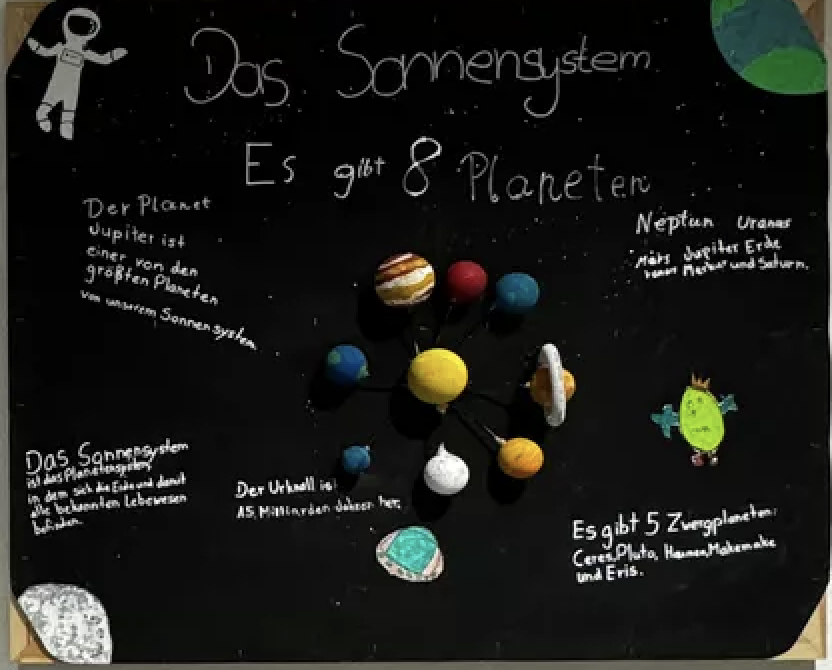 Das Sonnensystem
Es gibt 8 Planeten
Der Planet
Jupiter ist
einer von den
größten Planeten
von unserem Sonnensystem
Neptun Uranus
Mars Jupiter Erde
Venus Merkur und Saturn.
Das Sonnensystem
ist das Planetensystem,
in dem sich die Erde und damit
alle bekannten Lebewesen
befinden.
Der Urknall ist
15 Milliarden Jahren her.
Es gibt 5 Zwergplaneten:
Ceres, Pluto, Makemake
und Eris.